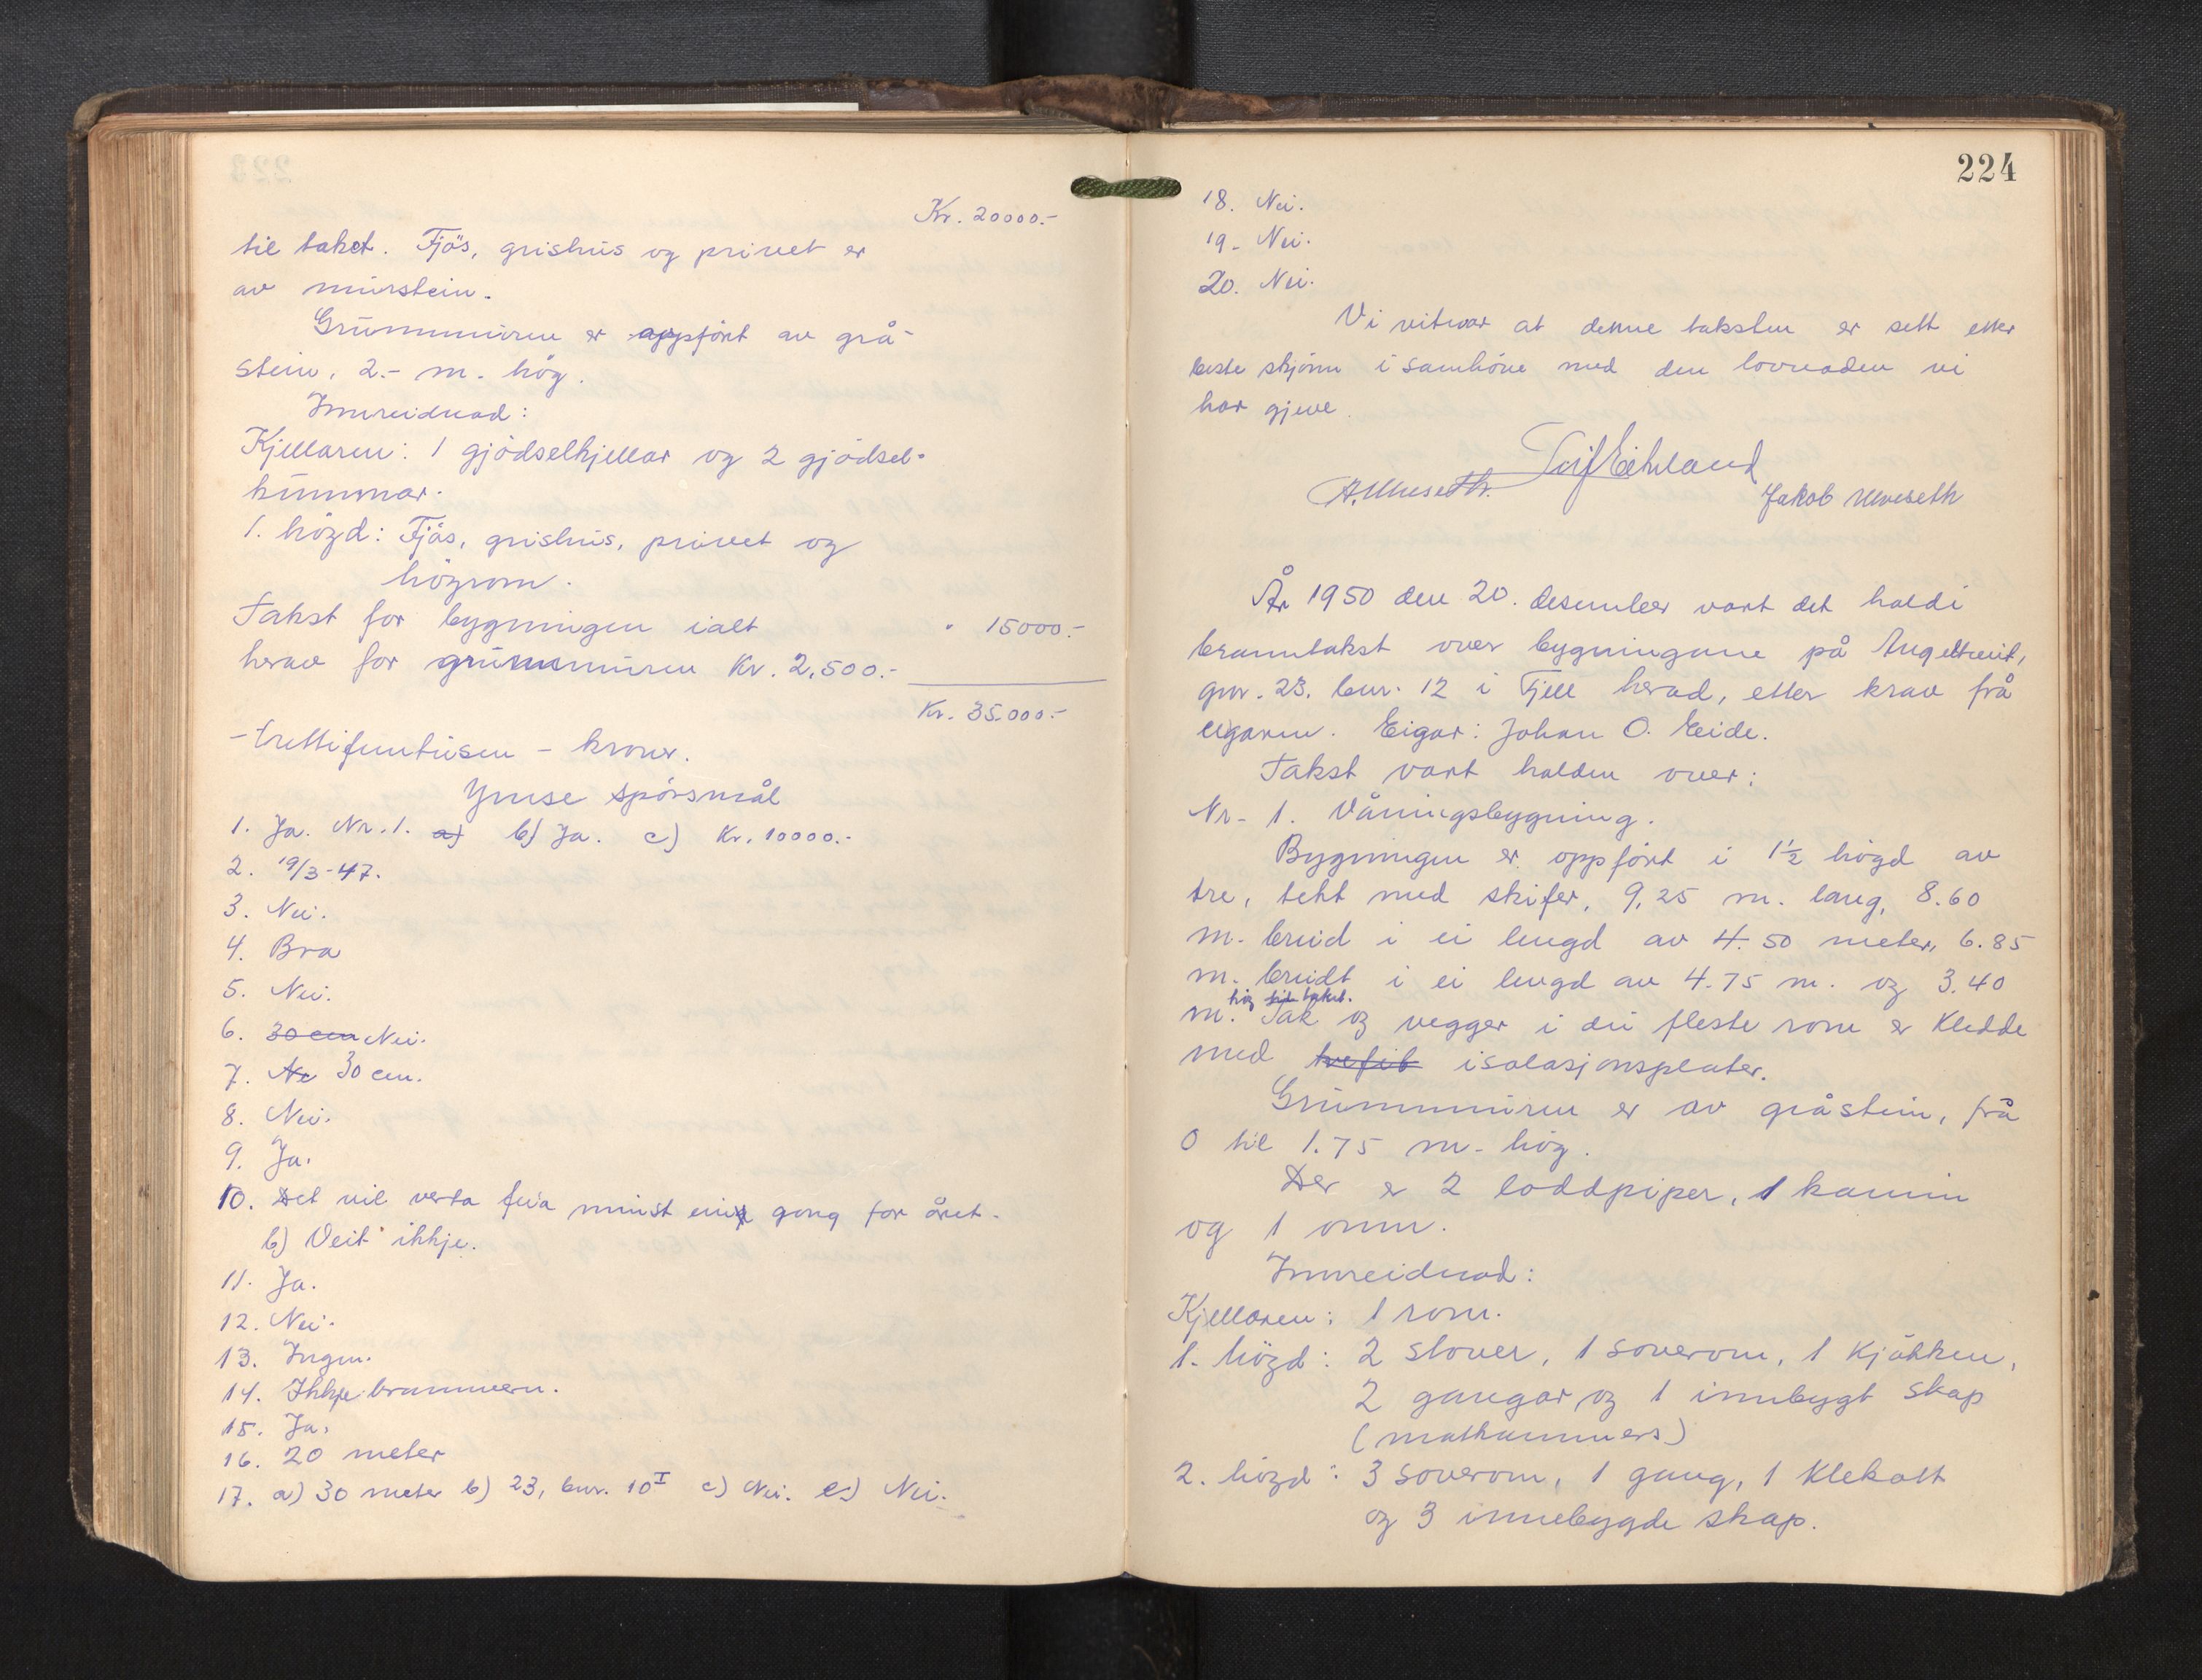 Kr. 20000.-
til taket. Fjös, grishus og privet er
av murstein.
Grunnmuren er oppfört av grå-
stein, 2.- m. hög.
Innreidnad:
Kjellaren: 1 gjödselkjellar og 2 gjödsel-
kummar.
1. högd: Fjös, grishus, privet og
högrom.
Takst for bygningen ialt " 15000.-
herav for grunnmuren Kr. 2,500.-
Kr. 35.000.-
-trettifemtusen- kroner.
Ymse spörsmål
1. Ja. Nr. 1. a) b) Ja. c) Kr. 10000.-
2. 19/3-47.
3. Nei.
4. Bra
5. Nei.
6. 30 cm Nei.
7. Ne 30 cm.
8. Nei.
9. Ja.
10. Det vil verta feia minst ein gong for året.
b) Veit ikkje.
11. Ja.
12. Nei.
13. Ingen.
14. Ikkje brannvern.
15. Ja.
16. 20 meter
17. a) 30 meter b) 23, bnr. 10 I c) Nei. e) Nei.
224
18. Nei.
19. Nei.
20. Nei.
Vi vitnar at denne taksten er sett etter
beste skjönn i samhöve med den lovnaden vi
har gjeve.
Jakob Ulveseth
År 1950 den 20. desember vart det haldi
branntakst over bygningane på Angeltveit,
gnr. 23. bnr. 12 i Fjell herad, etter krav frå
eigaren. Eigar: Johan O. Eide.
Takst vart halden over:
Nr. 1. Våningsbygning.
Bygningen er oppfört i 1½ högd av
tre, tekt med skifer, 9,25 m. lang, 8.60
m. breid i ei lengd av 4.50 meter, 6.85
m. breidt i ei lengd av 4.75 m. og 3.40
hög til taket.
m. Tak og vegger i dei fleste rom er kledde
med trefib isolasjonsplater.
Grunnmuren er av gråstein, frå
0 til 1.75 m. hög.
Der er 2 loddpiper, 1 kamin
og 1 omn.
Innreidnad:
Kjellaren: 1 rom.
1. högd: 2 stover, 1 soverom, 1 kjökken,
2 gangar og 1 innbygt skap
(matkammers)
2. högd: 3 soverom, 1 gang, 1 klekott
og 3 innebygde skap.